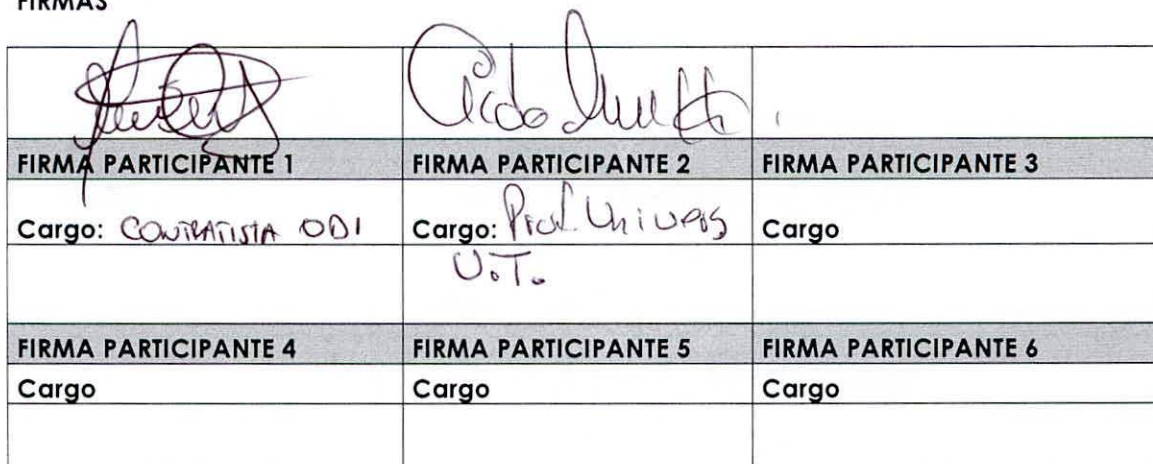 FIRMAS
FIRMA PARTICIPANTE 1 FIRMA PARTICIPANTE 2 FIRMA PARTICIPANTE 3
Cargo: CONTRATISTA ODI Cargo: Prof. Univers Cargo
U.T.
FIRMA PARTICIPANTE 4 FIRMA PARTICIPANTE 5 FIRMA PARTICIPANTE 6
Cargo Cargo Cargo